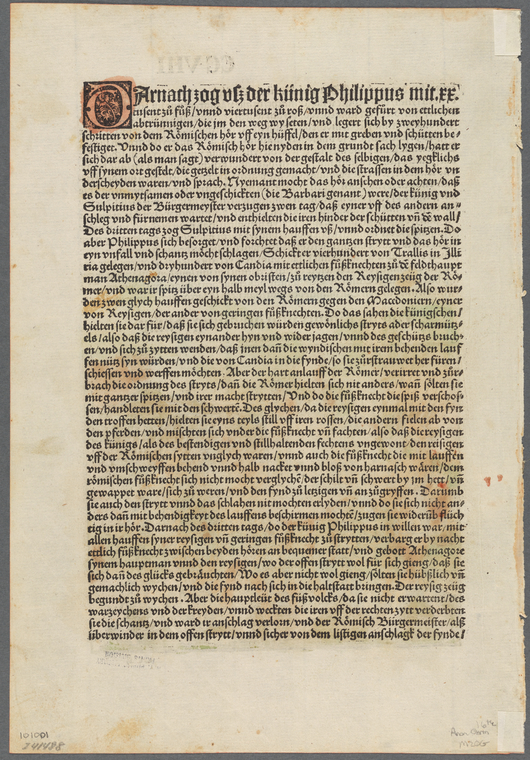 DArnach zog vß der künig Philippus mit.xx.
tusent zů fůß/vnnd viertusent zů roß/vnnd ward gefürt von ettlichen
abtrünnigen/die jm den weg wyseten/vnd legert sich by zweyhundert
schritten von dem Römischen hör vff eyn hüffel/den er mit greben vnd schütten be-
festiget. Vnnd do er das Römisch hör hienyden in dem grundt sach lygen/hatt er
sich dar ab (als man sagt) verwundert von der gestalt des selbigen/das yegklichs
vff synem ort gestelt/die getzelt in ordnung gemacht/vnd die strassen in dem hör vn
derscheyden waren/vnd sprach. Nyemant mocht das hör ansehen oder achten/daß
es der vnmytsamen oder vngeschickten (die Barbari genant) were/der künig vnd
Sulpitius der Bürgermeyster verzugen zwen tag/daß eyner vff des andern an-
schleg vnd fürnemen wartet/vnd enthielten die iren hinder der schütten vñ dē wall/
Des dritten tags zog Sulpitius mit synem hauffen vß/vnnd ordnet die spitzen. Do
aber Philippus sich besorget/vnd forchtet daß er den gantzen stryt vnd das hör in
eyn vnfall vnd schantz möcht schlagen/Schickt er vierhundert von Trallis in Jlli
ria gelegen/vnd dryhundert von Candia mit ettlichen fůßknechten zů dē feldhaupt
man Athenagora/eynen von synen obristen/zů reytzen den Reysigen zeüg der Rö-
mer/vnd war ir spitz über eyn halb meyl wegs von den Römern gelegen. Also wur-
den zwen glych hauffen geschickt von den Römern gegen den Macedoniern/eyner
von Reysigen/der ander von geringen fůßknechten. Do das sahen die künigschen/
hielten sie dar für/daß sie sich gebruchen würden gewönlichs stryts oder scharmütz-
els/also daß die reysigen eynander hyn vnd wider jagen/vnnd des geschütz bruch-
en/vnd sich zů zytten wenden/daß inen dañ die wyndischen mit iren behenden lauf
fen nütz syn würden/vnd die von Candia in die fynd/so sie zürstrauwet her füren/
schiessen vnd werffen möchten. Aber der hart anlauff der Römer/verirret vnd zür-
brach die ordnung des stryts/dañ die Römer hielten sich nit anders/wañ sölten sie
mit gantzer spitzen/vnd irer macht strytten/Vnd do die fůßknecht die spiß verschos-
sen/handleten sie mit den schwertē. Des glychen/da die reysigen eynmal mit den fyn
den troffen hetten/hielten sie eyns teyls still vff iren rossen/die andern fielen ab von
den pferden/vnd mischten sich vnder die fůßknecht vñ fachten/also daß die reysigen
des künigs/als des bestendigen vnd stillhaltenden fechtens vngewont/den reisigen
vff der Römischen sytten vnglych waren/vnnd auch die fůßknecht die mit lauffen
vnd vmschweyffen behend vnnd halb nacket vnnd bloß von harnasch wären/dem
römischen fůßknecht sich nicht mocht verglychē/der schilt vñ schwert by jm hett/vñ
gewappet ware/sich zů weren/vnd den fynd zů letzigen vñ anzůgryffen. Darumb
sie auch den stryt vnnd das schlahen nit mochten erlyden/vnnd do sie sich nicht an-
ders dañ mit behendigkeyt des lauffens beschirmen mocht̄/zugen sie widerůb flüch
tig in ir hör. Darnach des dritten tags/do der künig Philippus in willen war/mit
allen hauffen syner reysigen vñ geringen fůßknecht zů strytten/verbarg er by nacht
ettlich fůßknecht zwischen beyden hören an bequemer statt/vnd gebott Athenagore
synem hauptman vnnd den reysigen/wo der offen stryt wol für sich gieng/daß sie
sich dañ des glücks gebrauchten/Wo es aber nicht wol gieng/sölten sie hübßlich vñ
gemachlich wychen/vnd die fynd nach sich in die haltstatt bringen. Der reysig zeüg
begundt zů wychen. Aber die hauptleüt des fůßvolcks/da sie nicht erwartent/des
warzeychens vnd der kreyden/vnnd weckten die iren vff der rechten zytt verderbten
sie die schantz/vnd ward ir anschlag verlorn/vnd der Römisch Bürgermeister/alß
überwinder in dem offen strytt/vnnd sicher von dem listigen anschlagk der fynde/
101001
241488
16th
MssG